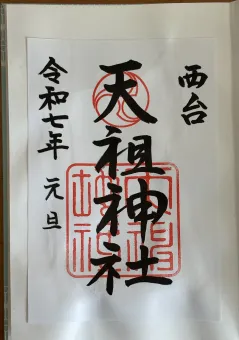 西台
天祖神社
令和七年 元旦